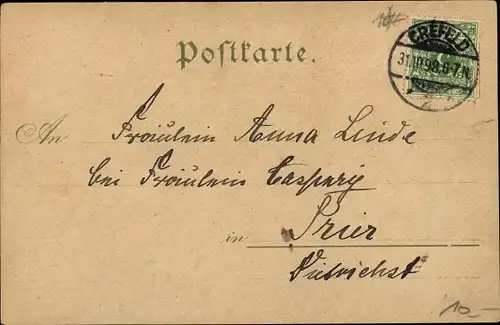 CREFELD
31.10.98.6-7N.
Postkarte.
An Fräulein Anna Linde
bei Fräulein Caspary
in Trier
10.-